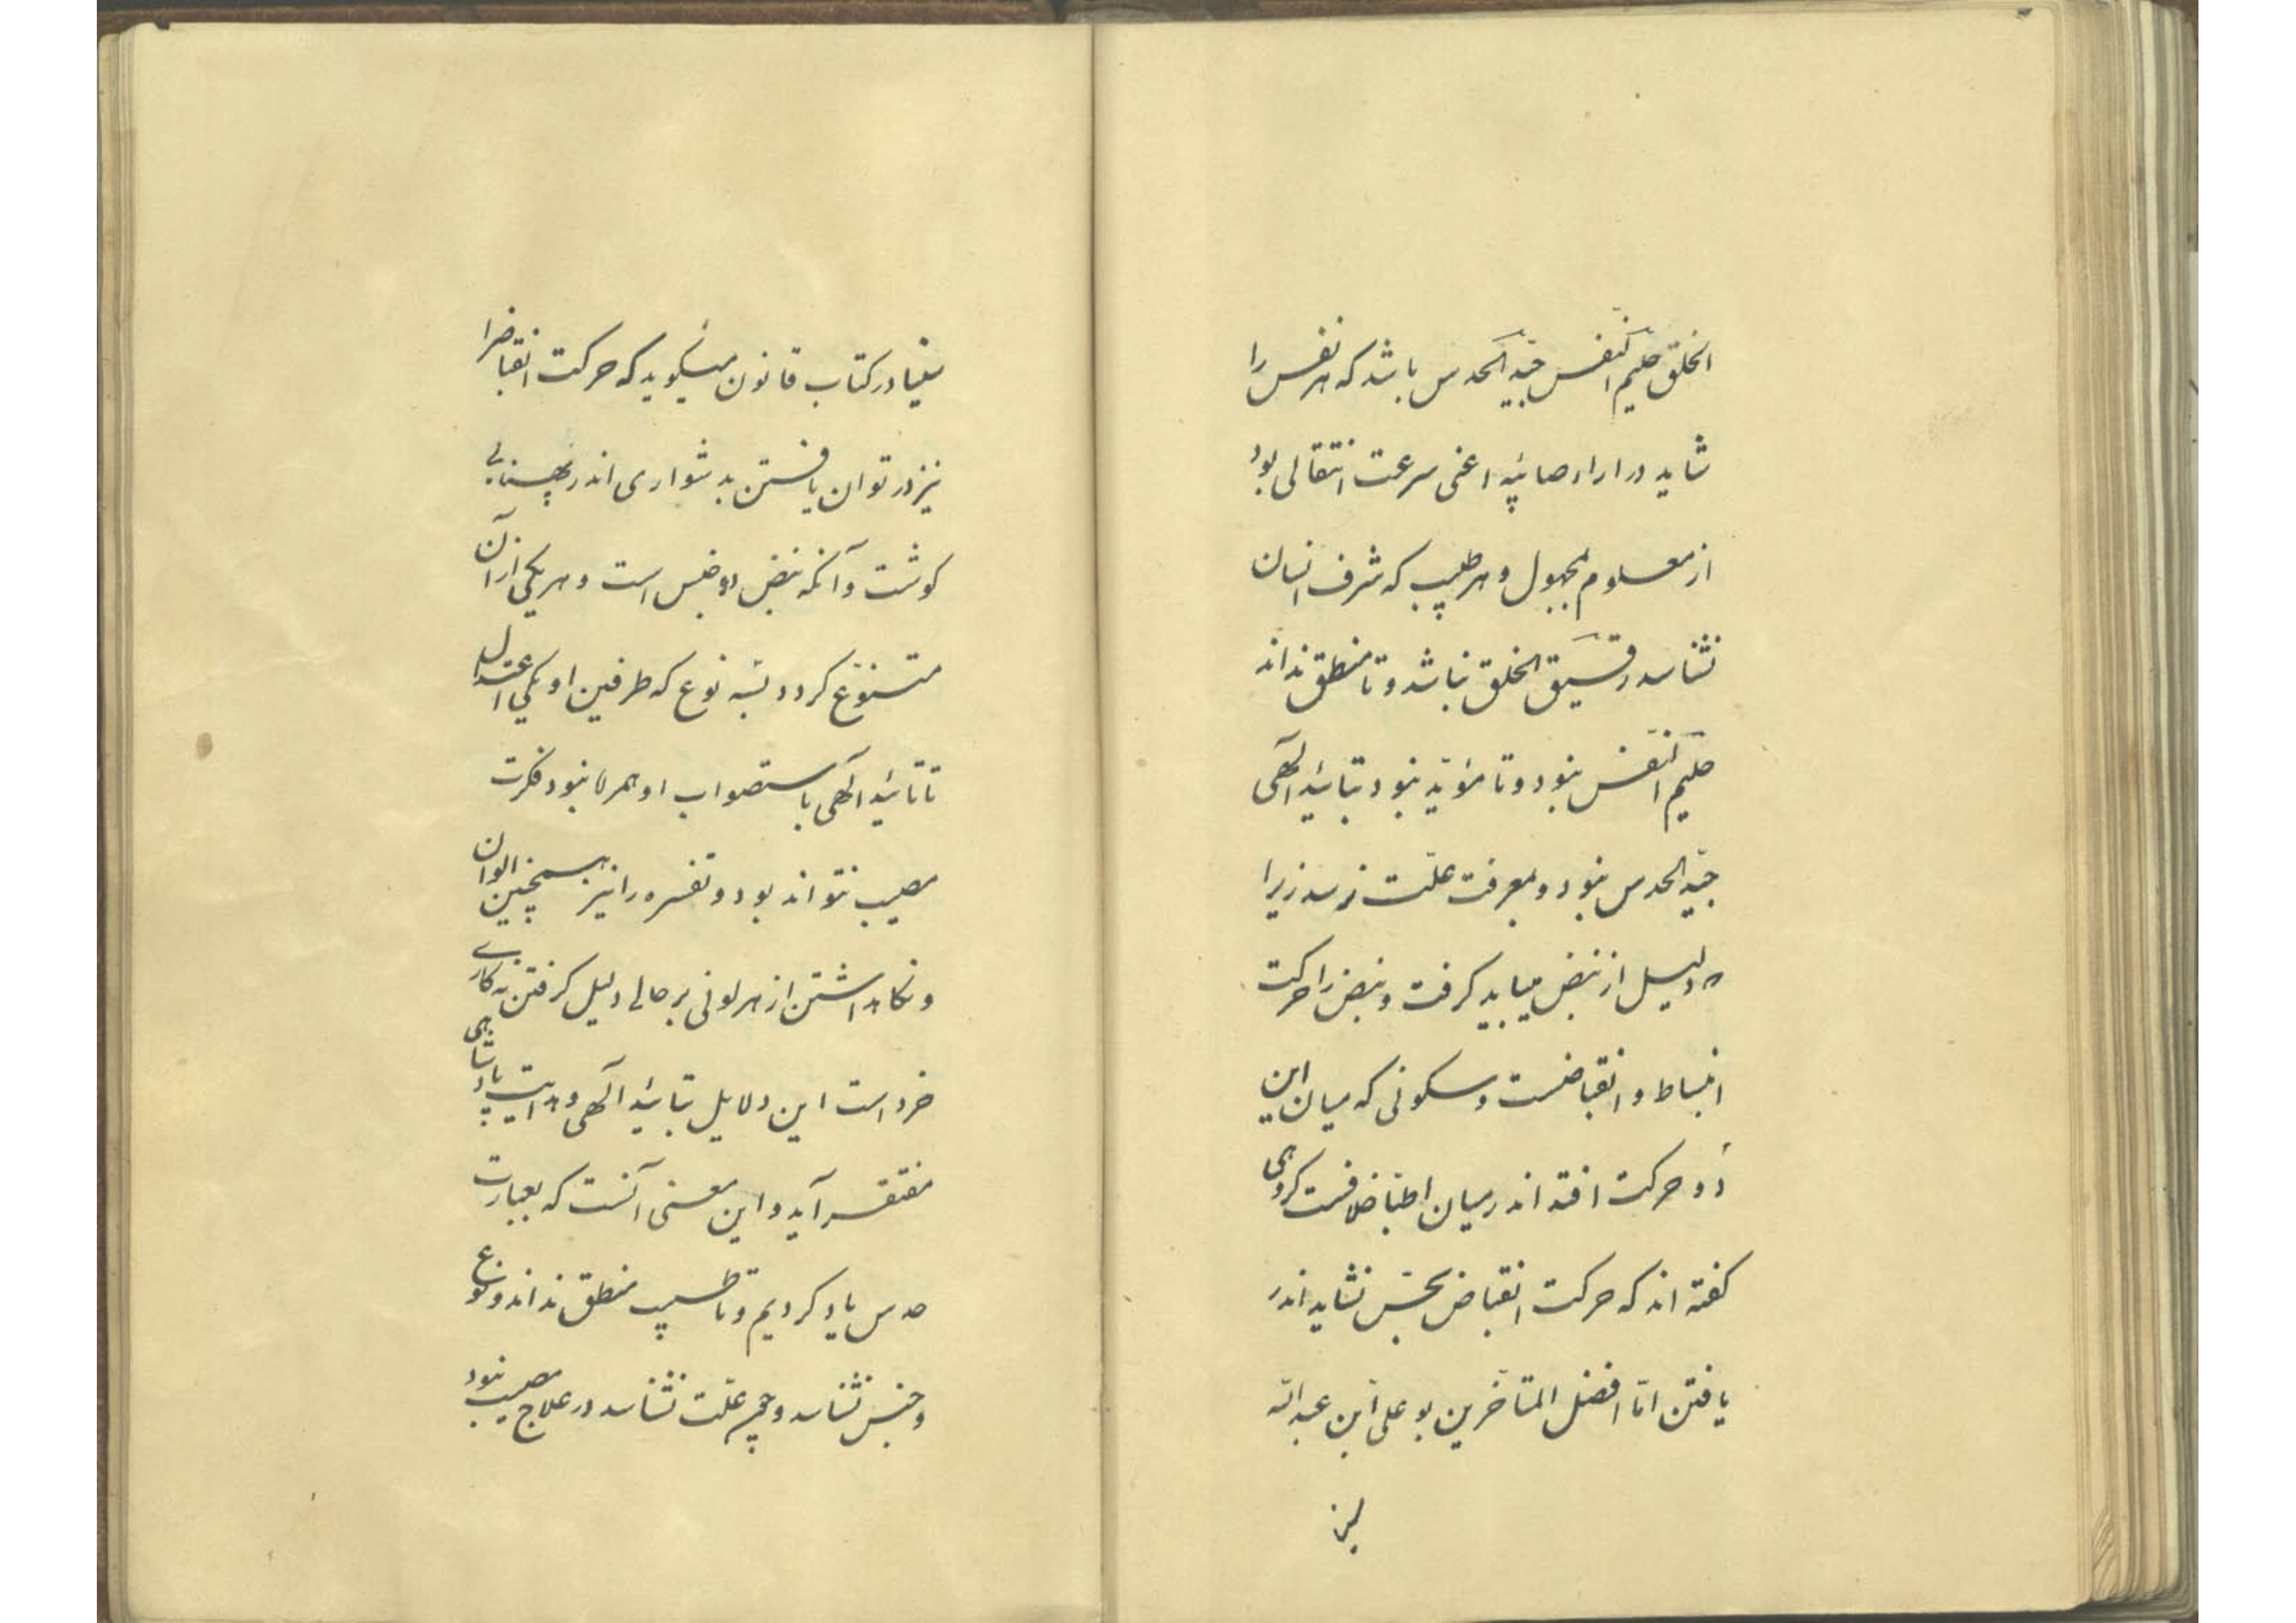 الخلق حلیم النفس جیّد الحدس باشد که هر نفس را
شاید در اراء صائبه اعنی سرعت انتقالی بود
از معلوم بمجهول و هر طبیب که شرف انسان
نشناسد رقیق الخلق نباشد و تا منطق نداند
حلیم النفس نبود و تا مؤید نبود بتائید الٓهی
جیّد الحدس نبود و بمعرفت علّت نرسد زیرا
که دلیل از نبض میباید گرفت و نبض را حرکت
انبساط و انقباضست و سکونی که میان این
دو حرکت افتد اندر میان اطبا خلافست کروهی
کفته اند که حرکت انقباض بحس نشاید اندر
یافتن امّا افضل المتأخرین بو علی ابن عبد الله
سینا در کتاب قانون میگوید که حرکت انقباض را
نیز در توان یافتن بدشواری اندر
کوشت و آنکه نبض دو جنس است و هر یکی از آن
متنوّع کردد بسه نوع که طرفین او یکی اعتدال
تا تائید الٓهی باستصواب او همراه نبود فکرت
مصیب نتواند بود و تفسره را نیز همچنین الوان
و نکاهداشتن از هر لونی بر حالی دلیل کرفتن نه کاری
خرد است این دلایل بتائید الٓهی و هدایت پادشاهی
مفتقر آید و این معنی آنست که بعبارت
حدس یاد کردیم و تا طبیب منطق نداند و نوع
و جنس نشناسد و علّت نشناسد در علاج مصیب نبود